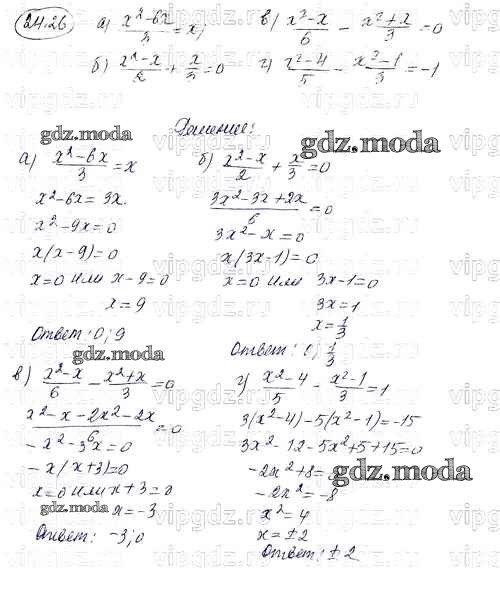 24.26 а) (x²-6x)/3 = x; в) (x²-x)/6 - (x²+x)/3 = 0
б) (x²-x)/2 + x/3 = 0 г) (x²-4)/5 - (x²-1)/3 = -1
Решение:
gdz.moda
gdz.moda
а) (x²-6x)/3 = x
x²-6x = 3x
x²-9x=0
x(x-9)=0
x=0 или x-9=0
x=9
Ответ: 0; 9
б) (x²-x)/2 + x/3 = 0
(3x²-3x+2x)/6 = 0
3x²-x=0
x(3x-1)=0
x=0 или 3x-1=0
3x=1
x=1/3
Ответ: 0; 1/3
gdz.moda
в) (x²-x)/6 - (x²+x)/3 = 0
(x²-x-2x²-2x)/6 = 0
-x²-3x=0
-x(x+3)=0
x=0 или x+3=0
gdz.moda x=-3
Ответ: -3; 0
г) (x²-4)/5 - (x²-1)/3 = 1
3(x²-4)-5(x²-1)=-15
3x²-12-5x²+5+15=0
-2x²+8=
gdz.moda
-2x²=-8
x²=4
x=±2
Ответ: ±2
vipgdz.ru